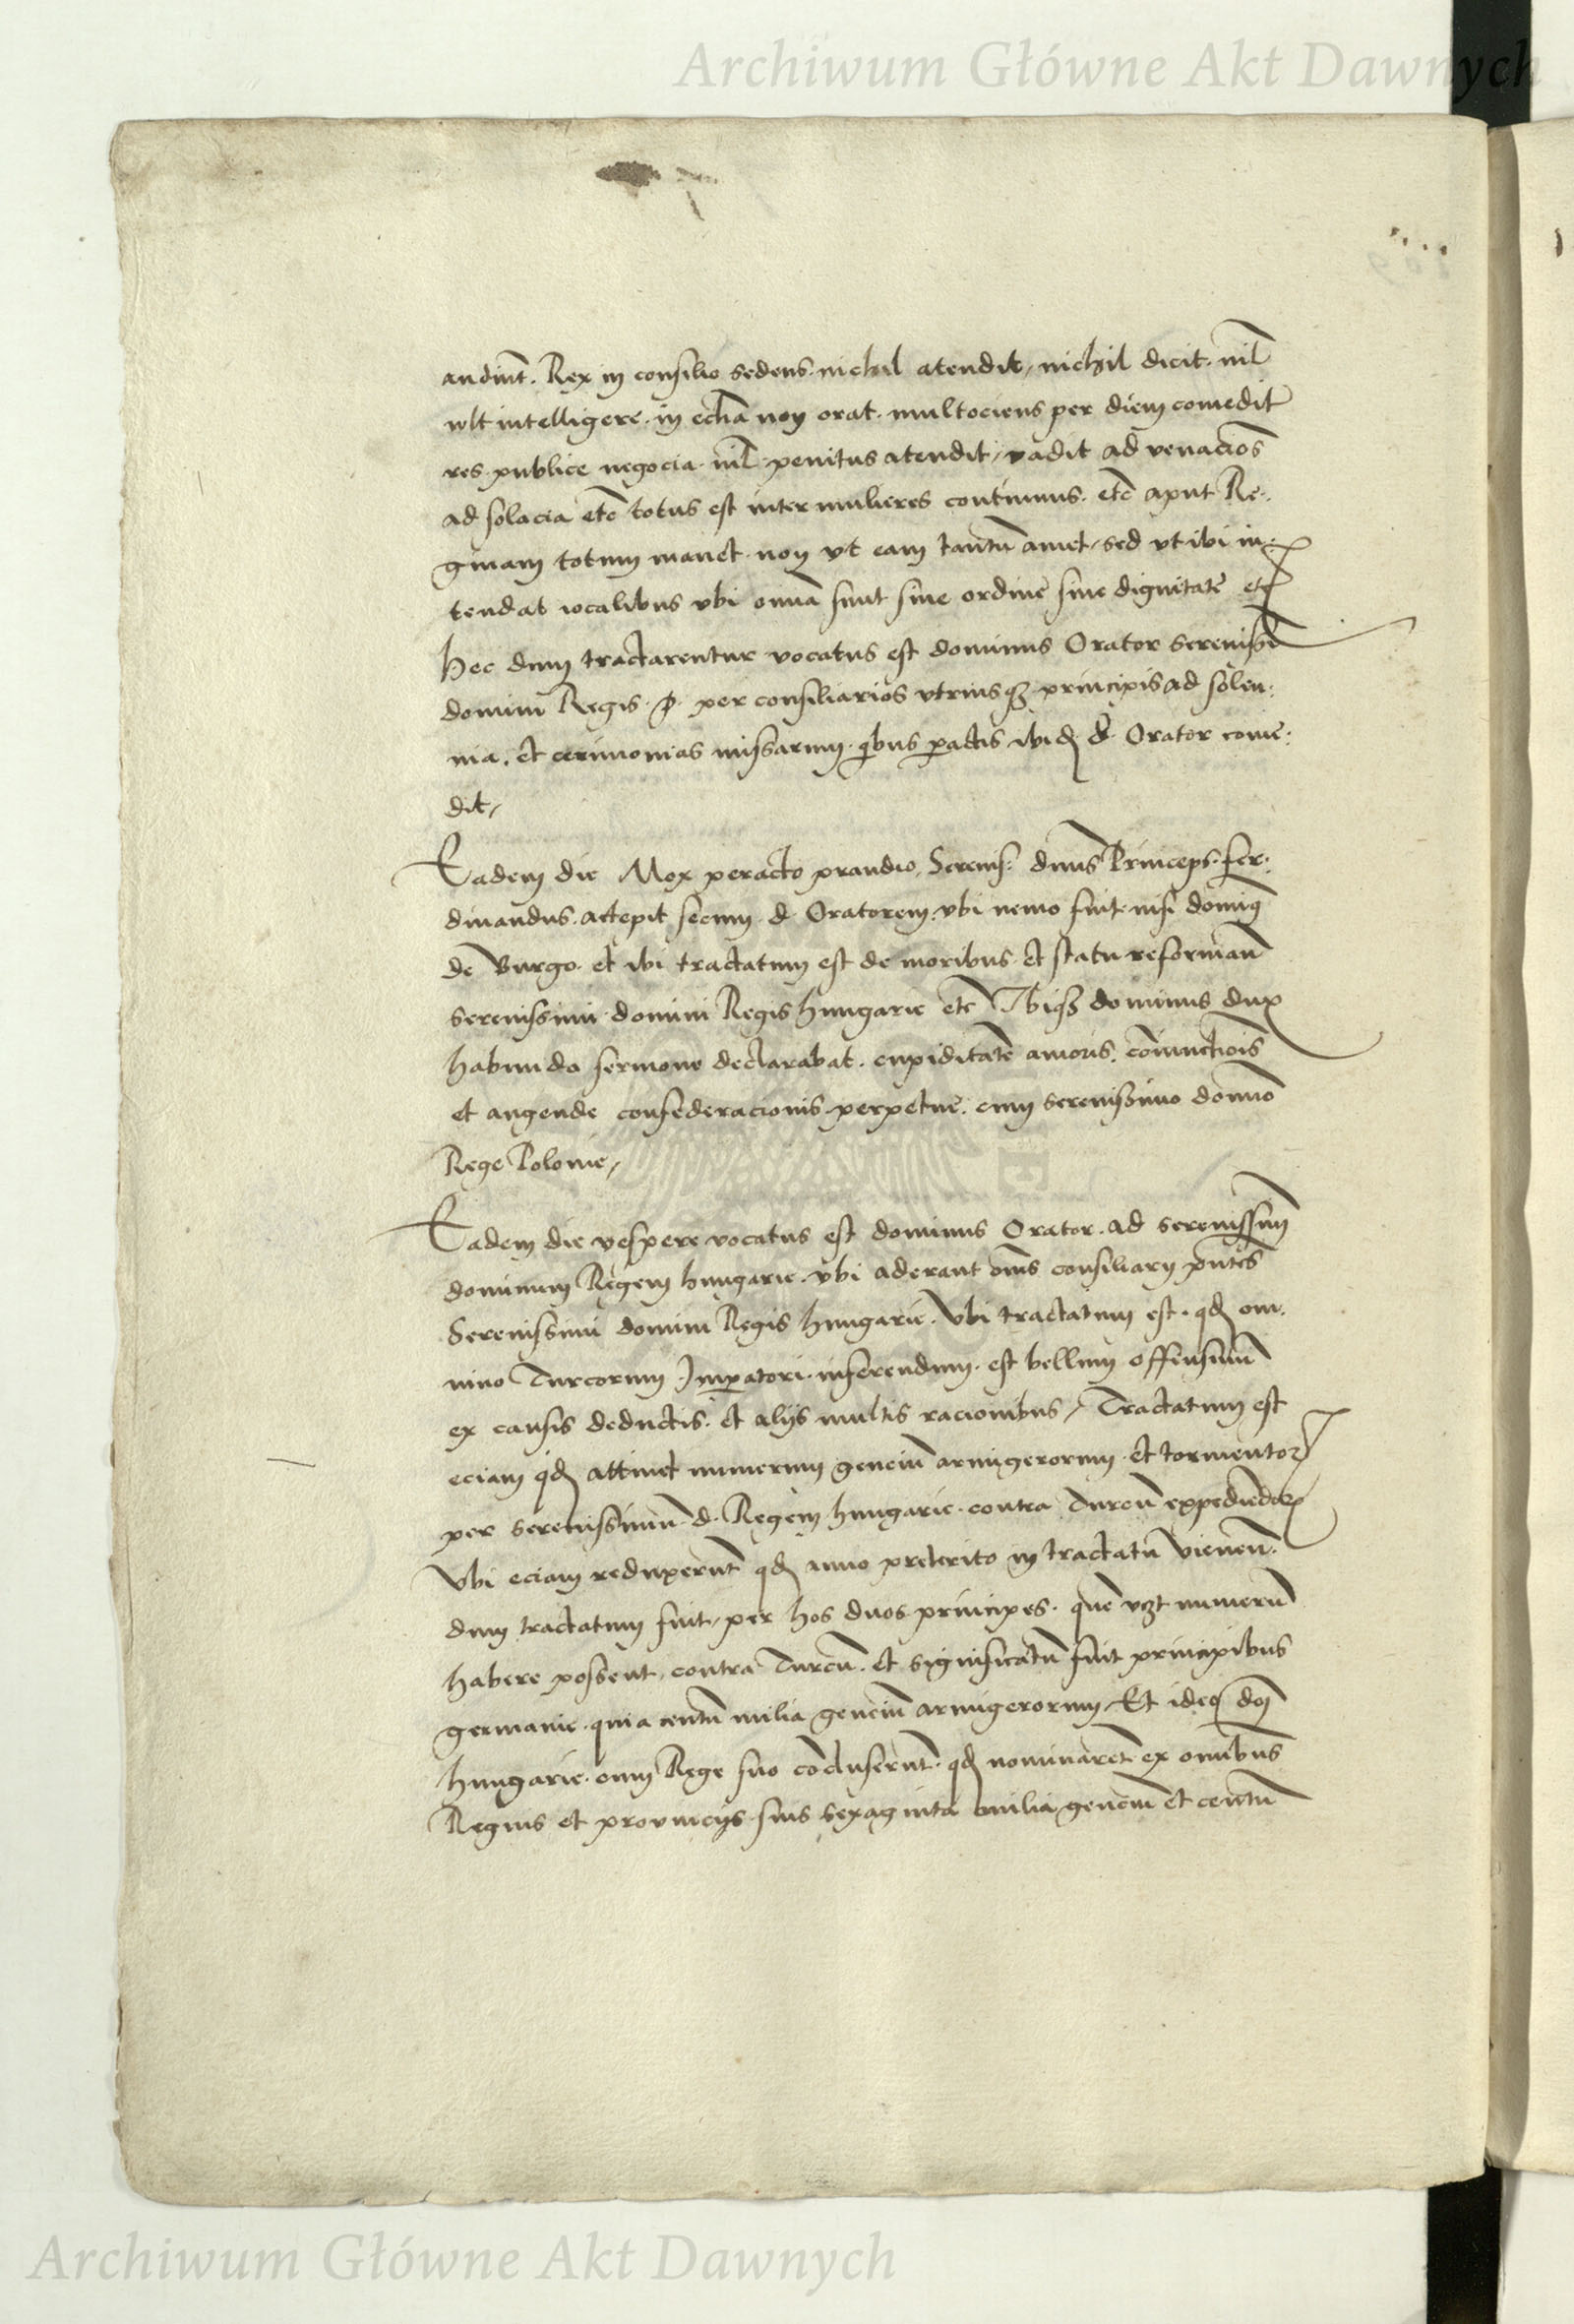 Archiwum Główne Akt Dawnych
audiunt. Rex in consilio sedens nichil atendit, nichil dicit. nil̄
vlt intelligere. in eccl̄ia non orat. multociens per diem comedit
res publice negocia nil̄ penitus atendit, vadit ad venacīo͞es
ad solacia etc̄ totus est inter mulieres continuus. etc̄ aput Re-
ginam totum manet. non vt eam tantū amet, sed vt ibi in-
tendat iocalibus vbi om̄ia sunt sine ordine sine dignitate etc̄
Hec dum tractarentur vocatus est dominus Orator serenissi͞
domini Regis. P. per consiliarios vtriusqꝫ principis ad solen-
nia. et cerimonias missarum. qͥbus ꝑactis ibid̄ d. Orator come-
dit,
Eadem die Mox peracto prandio, Serenis: dn̄us Princeps. fer-
dinandus. accepit secum d. Oratorem. vbi nemo fuit nisi dominꝰ
de Burgo. et ibi tractatum est de moribus et statu reforman̄
serenissimi domini Regis hungarie etc̄ Ibiqꝫ dominus dux
habundo sermone declarabat. cupiditatē amoris. cōiunctiōis
et augende confederacionis perpetue. cum serenissimo domīo
Rege Polonie,
Eadem die vespere vocatus est dominus Orator. ad serenissim̄
dominum Regem hungarie. vbi aderant om̄s consiliarij pn̄tes
Serenissimi domini Regis hungarie. Vbi tractatum est. qd̄ om-
nino Turcorum Imꝑatori. inferendum. est bellum offensiuū
ex causis deductis. et alijs multis racionibus, Tractatum est
eciam qd̄ attinet numerum genciū armigerorum et tormentoꝝ
per serenissimū d. Regem hungarie. contra Turcū expediendoꝝ
Vbi eciam reduxerūt qd̄ anno preterito in tractatu vienen̄.
dum tractatum fuit, per hos duos principes. quē vꝫt numerū
habere possent, contra Turcū. et significatū fuit principibus
germanie. quia centū milia genciū armigerorum, Et ideo dn̄i
hungarie. cum Rege suo cōcluserūt. qd̄ nominaret ex om̄ibus
Regnis et prouincijs suis sexaginta milia genciū et centū
Archiwum Główne Akt Dawnych